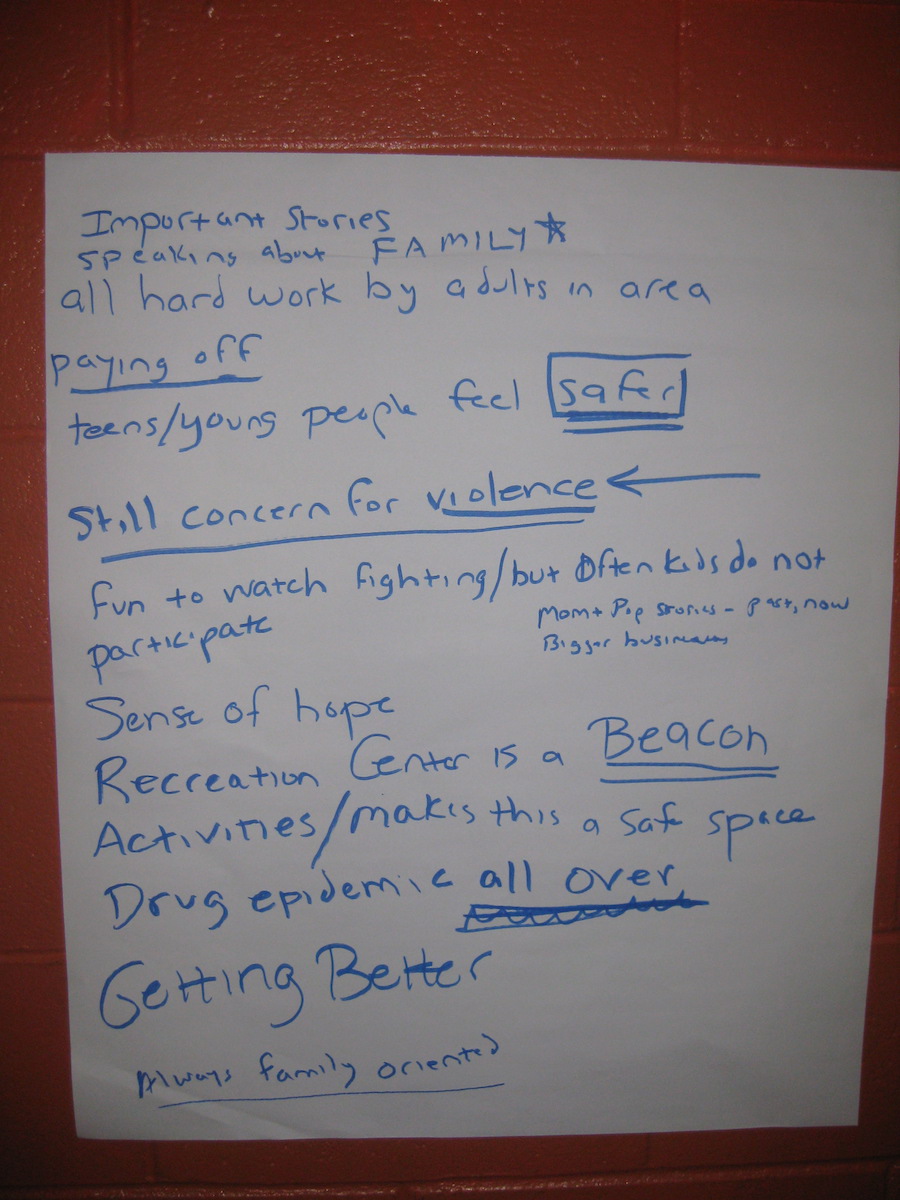 Important Stories
speaking about FAMILY
all hard work by adults in area
paying off
teens/young people feel safer
Still concern for violence
fun to watch fighting/but Often kids do not
participate
Mom + Pop stories - past, now
Bigger business
Sense of hope
Recreation Center is a Beacon
Activities/makes this a safe space
Drug epidemic all over
Getting Better
Always family oriented